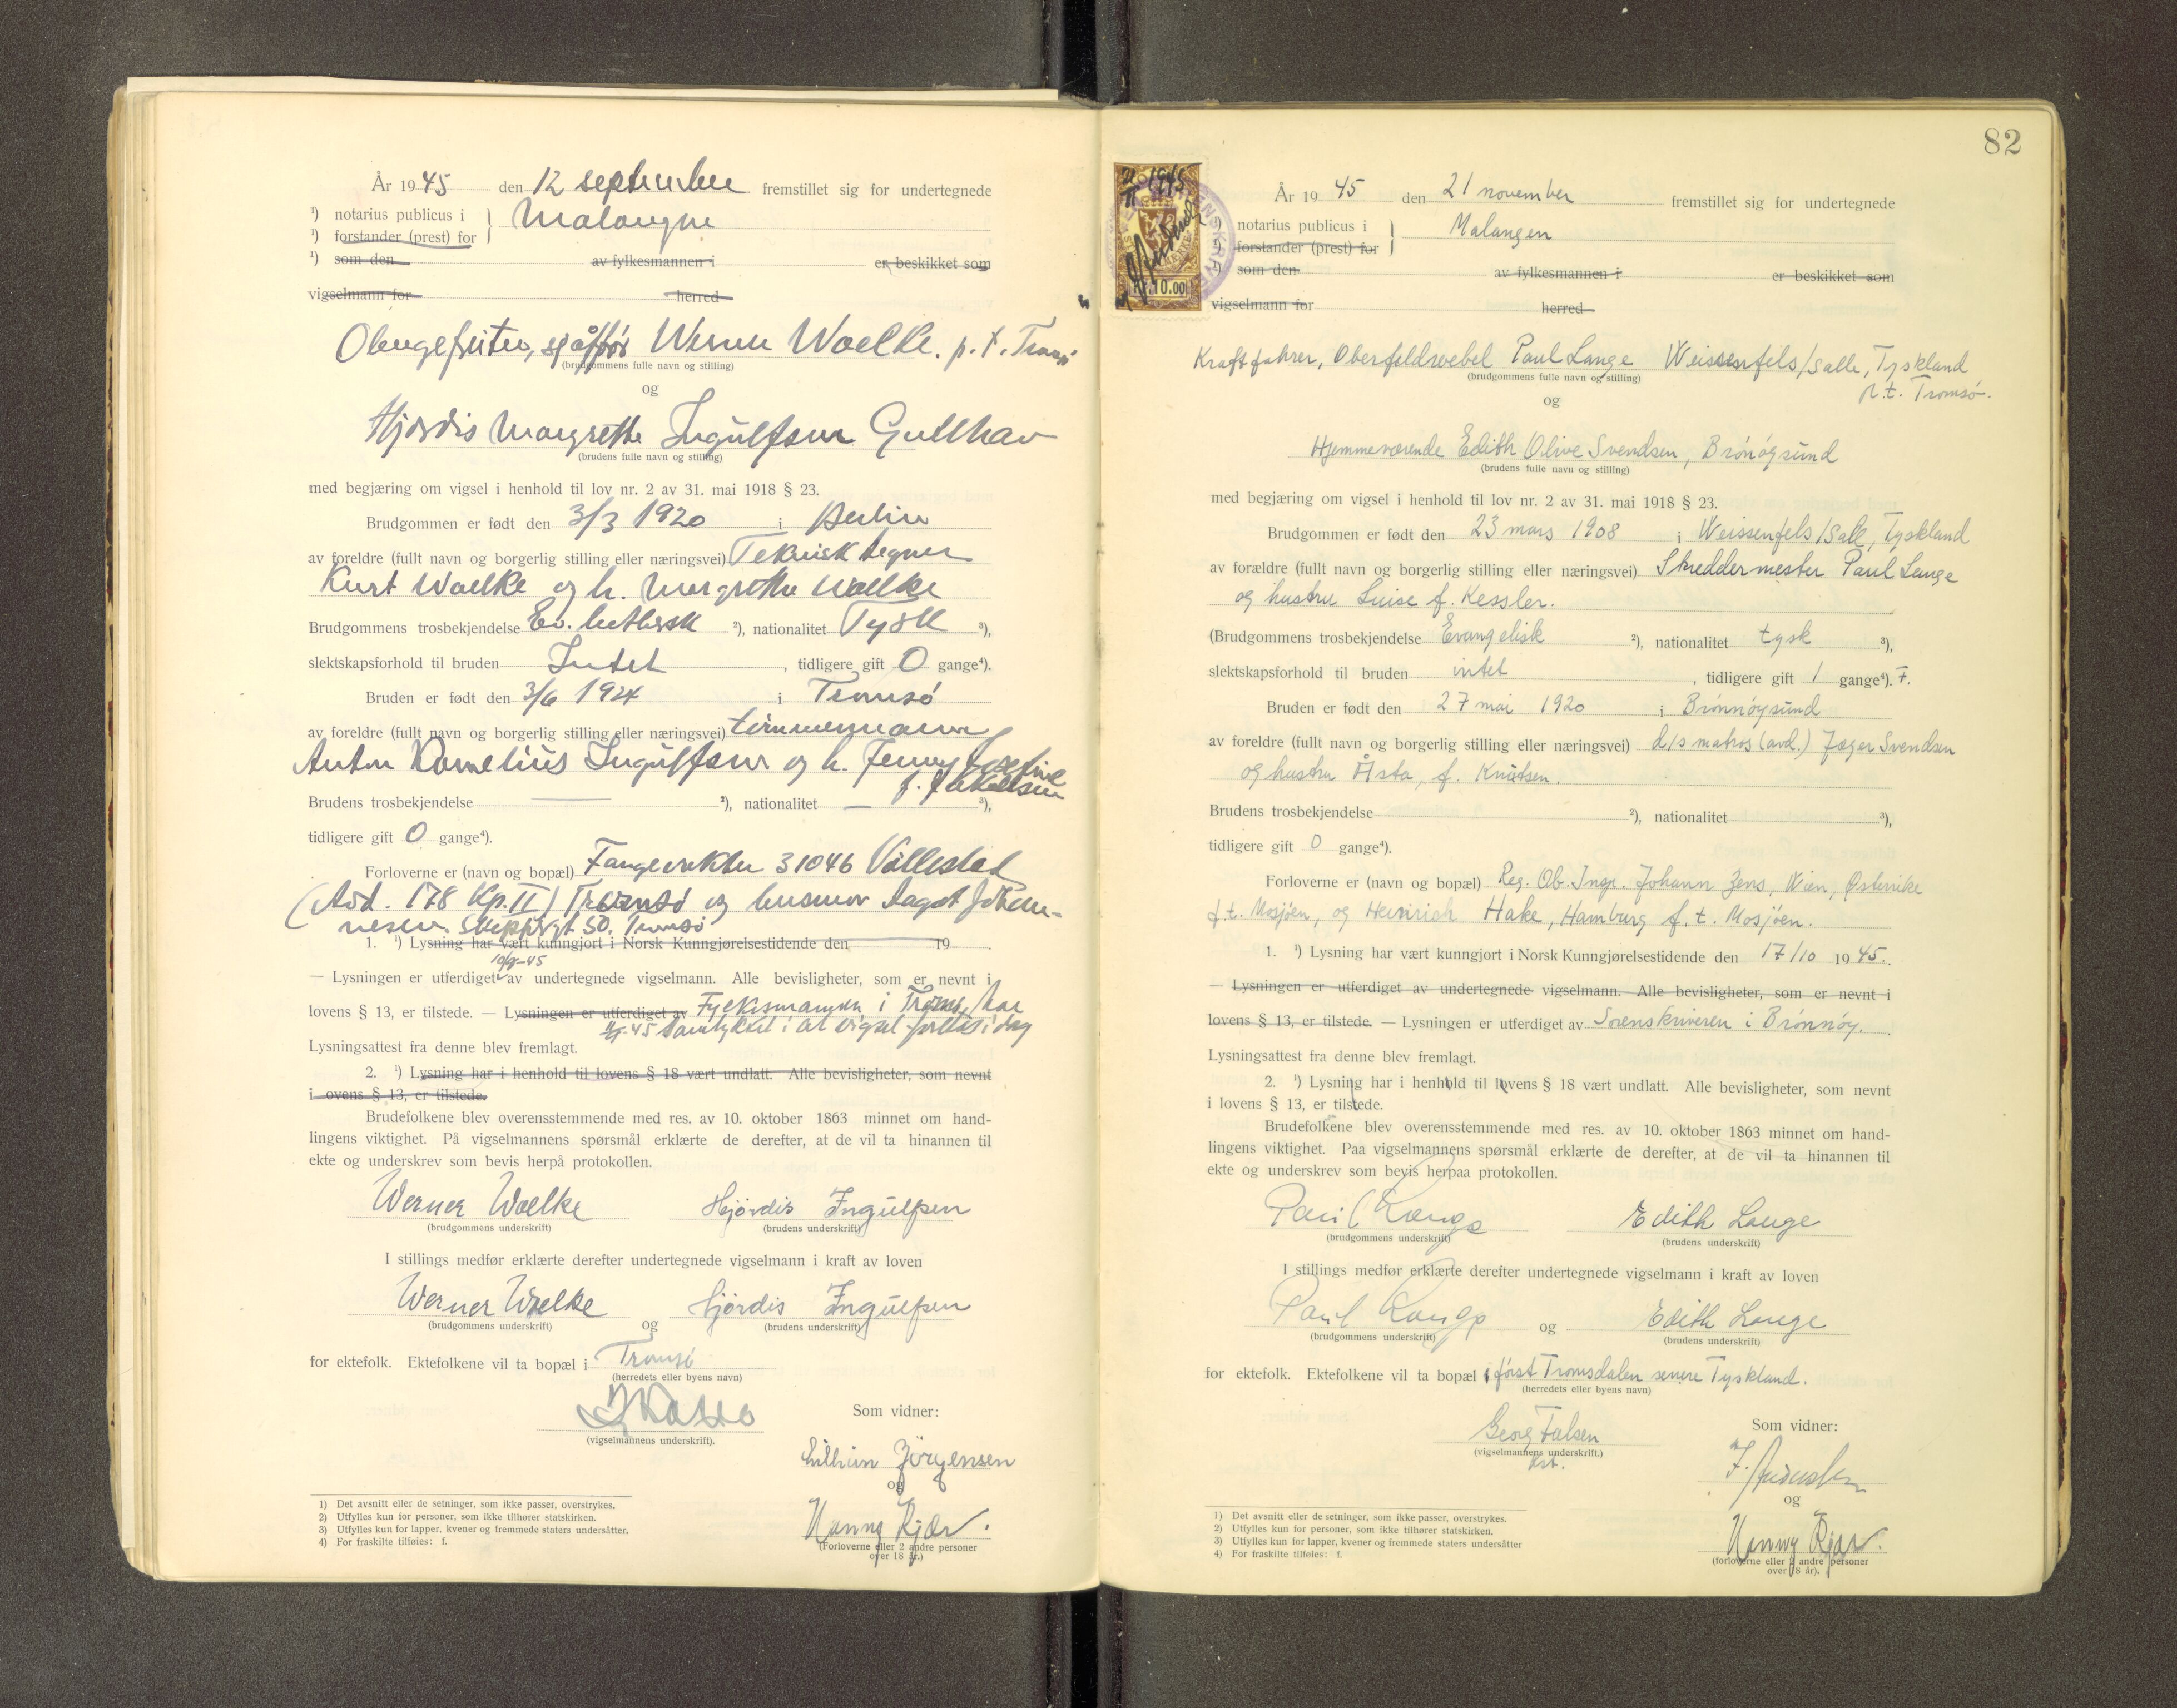 År 19 45 den 12 september fremstillet sig for undertegnede
1) notarius publicus i
1) forstander (prest) for } Malangen
1) som den av fylkesmannen i er beskikket som
vigselmann for herred
Obergefreiter, sjåffør Werner Woelke. p. t. Tromsø
(brudgommens fulle navn og stilling)
og
Hjørdis Margrethe Ingulfsen Gullhav
(brudens fulle navn og stilling)
med begjæring om vigsel i henhold til lov nr. 2 av 31. mai 1918 § 23.
Brudgommen er født den 3/3 1920 i Berlin
av foreldre (fullt navn og borgerlig stilling eller næringsvei) Teknisk tegner
Kurt Woelke og h. Margrethe Woelke
Brudgommens trosbekjendelse Ev. luthersk 2), nationalitet Tysk 3),
slektskapsforhold til bruden Intet, tidligere gift 0 gange4).
Bruden er født den 3/6 1924 i Tromsø
av foreldre (fullt navn og borgerlig stilling eller næringsvei) tømmermann
Anton Kornelius Ingulfsen og h. Jenny Josefine
f. Jakobsen
Brudens trosbekjendelse — 2), nationalitet — 3),
tidligere gift 0 gange4).
Forloverne er (navn og bopæl) Fangevokter 31046 Vollestad
(Avd. 178 Kp. II) Tromsø og husmor Dagot Johan-
nesen. Skippergt 50. Tromsø
1. 1) Lysning har vært kunngjort i Norsk Kunngjørelsestidende den 19
— Lysningen er utferdiget av undertegnede vigselmann. Alle bevisligheter, som er nevnt i
lovens § 13, er tilstede. — Lysningen er utferdiget av Fylkesmannen i Troms har
-45 samtykket i at vigsel foretas i dag
Lysningsattest fra denne blev fremlagt.
2. 1) Lysning har i henhold til lovens § 18 vært undlatt. Alle bevisligheter, som nevnt
i ovens § 13, er tilstede.
Brudefolkene blev overensstemmende med res. av 10. oktober 1863 minnet om hand-
lingens viktighet. På vigselmannens spørsmål erklærte de derefter, at de vil ta hinannen til
ekte og underskrev som bevis herpå protokollen.
Werner Woelke Hjördis Ingulfsen
(brudgommens underskrift) (brudens underskrift)
I stillings medfør erklærte derefter undertegnede vigselmann i kraft av loven
Werner Woelke og Hjördis Ingulfsen
(brudgommens underskrift) (brudens underskrift)
for ektefolk. Ektefolkene vil ta bopæl i Tromsø
(herredets eller byens navn)
(vigselmannens underskrift).
Som vidner:
Jörgensen
og
Nanny Kjær.
(Forloverne eller 2 andre personer
over 18 år.)
1) Det avsnitt eller de setninger, som ikke passer, overstrykes.
2) Utfylles kun for personer, som ikke tilhører statskirken.
3) Utfylles kun for lapper, kvener og fremmede staters undersåtter.
4) For fraskilte tilføies: f.
82
Kr. 10.00
År 19 45 den 21 november fremstillet sig for undertegnede
notarius publicus i
forstander (prest) for } Malangen
som den av fylkesmannen i er beskikket som
vigselmann for herred
Kraftfahrer, Oberfeldwebel Paul Lange Weissenfels/Salle, Tyskland
p.t. Tromsø.
(brudgommens fulle navn og stilling)
og
Hjemmeværende Edith Olive Svendsen, Brønøysund
(brudens fulle navn og stilling)
med begjæring om vigsel i henhold til lov nr. 2 av 31. mai 1918 § 23.
Brudgommen er født den 23 mars 1908 i Weissenfels/Sall, Tyskland
av forældre (fullt navn og borgerlig stilling eller næringsvei) Skreddermester Paul Lange
og hustru Luise f. Kessler.
(Brudgommens trosbekjendelse Evangelisk 2), nationalitet tysk 3),
slektskapsforhold til bruden intet, tidligere gift 1 gange4). F.
Bruden er født den 27 mai 1920 i Brønnøysund
av foreldre (fullt navn og borgerlig stilling eller næringsvei) d/s matros (avd.) Jæger Svendsen
og hustru Åsta, f. Knutsen.
Brudens trosbekjendelse 2), nationalitet 3),
tidligere gift 0 gange4).
Forloverne er (navn og bopæl) Reg. Ob. Insp. Johann Zens, Wien, Østerrike
f.t. Mosjøen, og Heinrich Hake, Hamburg f. t. Mosjøen.
1. 1) Lysning har vært kunngjort i Norsk Kunngjørelsestidende den 17/10 19 45.
— Lysningen er utferdiget av undertegnede vigselmann. Alle bevisligheter, som er nevnt i
lovens § 13, er tilstede. — Lysningen er utferdiget av Sorenskriveren i Brønnøy.
Lysningsattest fra denne blev fremlagt.
2. 1) Lysning har i henhold til lovens § 18 vært undlatt. Alle bevisligheter, som nevnt
i lovens § 13, er tilstede.
Brudefolkene blev overensstemmende med res. av 10. oktober 1863 minnet om hand-
lingens viktighet. Paa vigselmannens spørsmål erklærte de derefter, at de vil ta hinannen til
ekte og underskrev som bevis herpaa protokollen.
Paul Lange Edith Lange
(brudgommens underskrift) (brudens underskrift)
I stillings medfør erklærte derefter undertegnede vigselmann i kraft av loven
Paul Lange og Edith Lange
(brudgommens underskrift) (brudens underskrift)
for ektefolk. Ektefolkene vil ta bopæl i først Tromsdalen senere Tyskland.
(herredets eller byens navn)
Georg Falsen
(vigselmannens underskrift.)
kst.
Som vidner:
og
Nanny Kjær.
(forloverne eller 2 andre personer
over 18 år).
1) Det avsnitt eller de setninger, som ikke passer, overstrykes.
2) Utfylles kun for personer, som ikke tilhører statskirken.
3) Utfylles kun for lapper, kvener og fremmede staters undersåtter
4) For fraskilte tilføies: f.